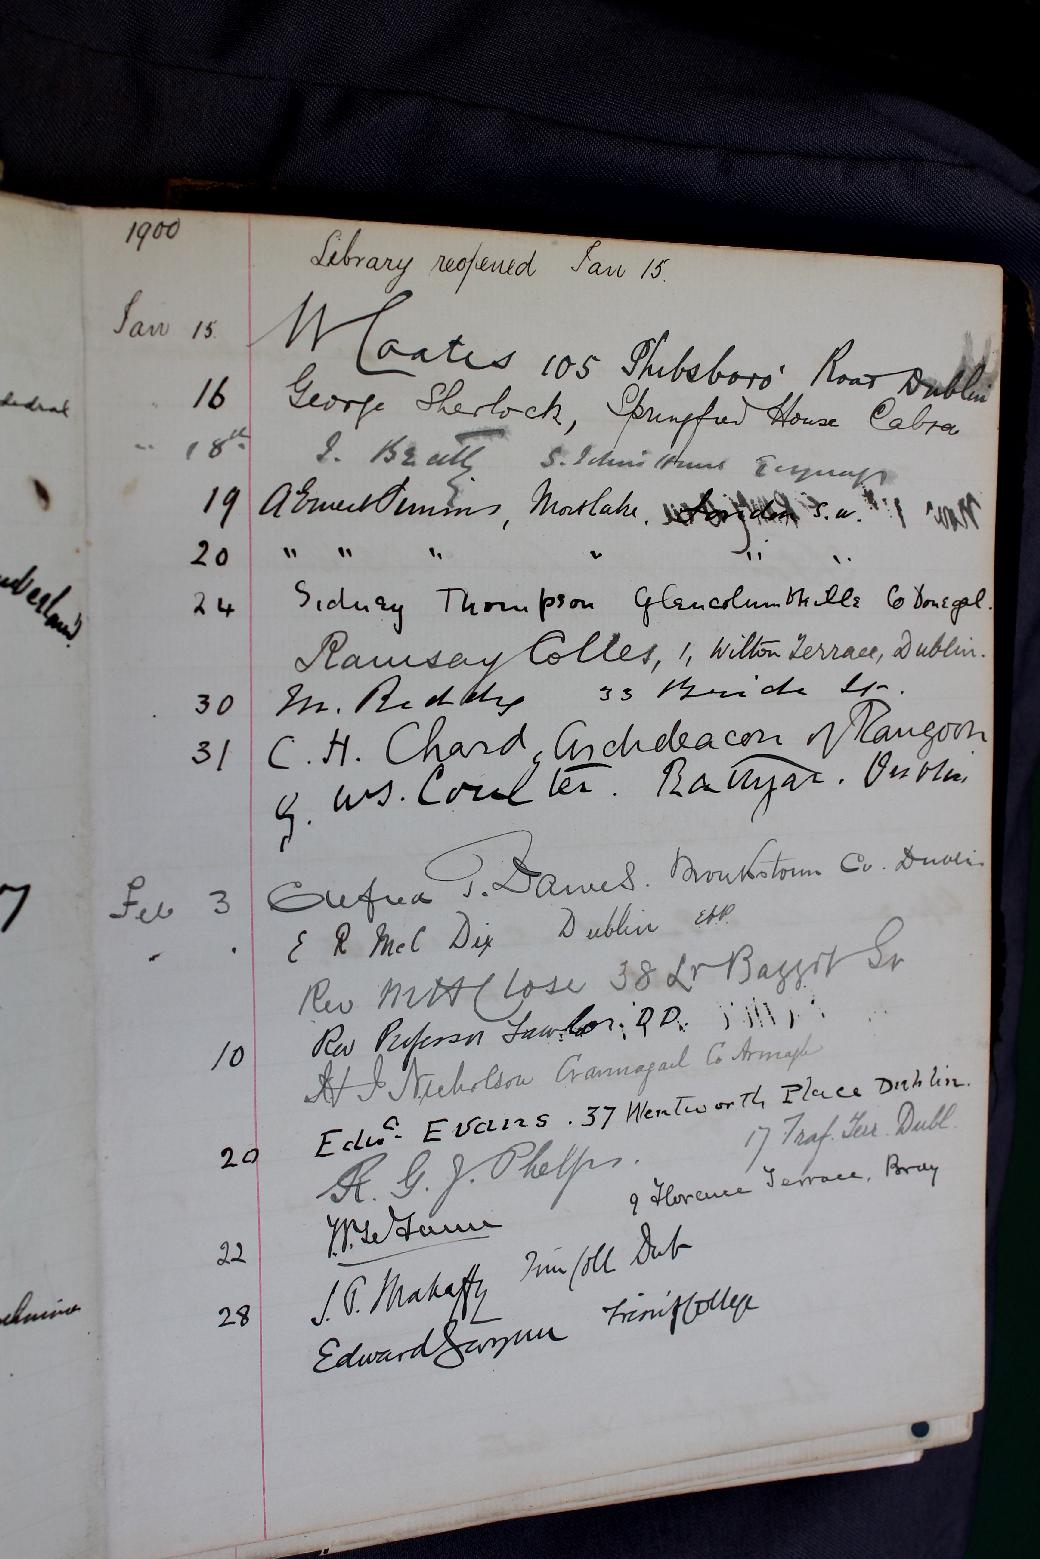 1900
Library reopened Jan 15.
Jan 15 W Coates 105 Phibsboro' Road Dublin
16 George Sherlock, Springfield House Cabra
" 18th J. Beatty
19 A Ernest Timmins, Mortlake, London S.W.
20 " " " " " "
24 Sidney Thompson Glencolumbkille Co Donegal.
Ramsay Colles, 1, Wilton Terrace, Dublin.
30 M. Reddy 33 Bride St.
31 C. H. Chard, Archdeacon of Rangoon
G. W S. Coulter. Rathgar. Dublin
Feb 3 T. Dawes. Co. Dublin
" " E R McC Dix Dublin
Rev M H Close 38 Lr Baggot St
10 Rev Professor Lawlor, D.D.
H J Nicholson Crannagael Co Armagh
20 Edwd Evans. 37 Wentworth Place Dublin.
R. G. J. Phelps. 17 Traf. Terr. Dubl.
22 9 Florence Terrace, Bray
28 J. P. Mahaffy Trin Coll Dub
Edward Gwynn Trinity College